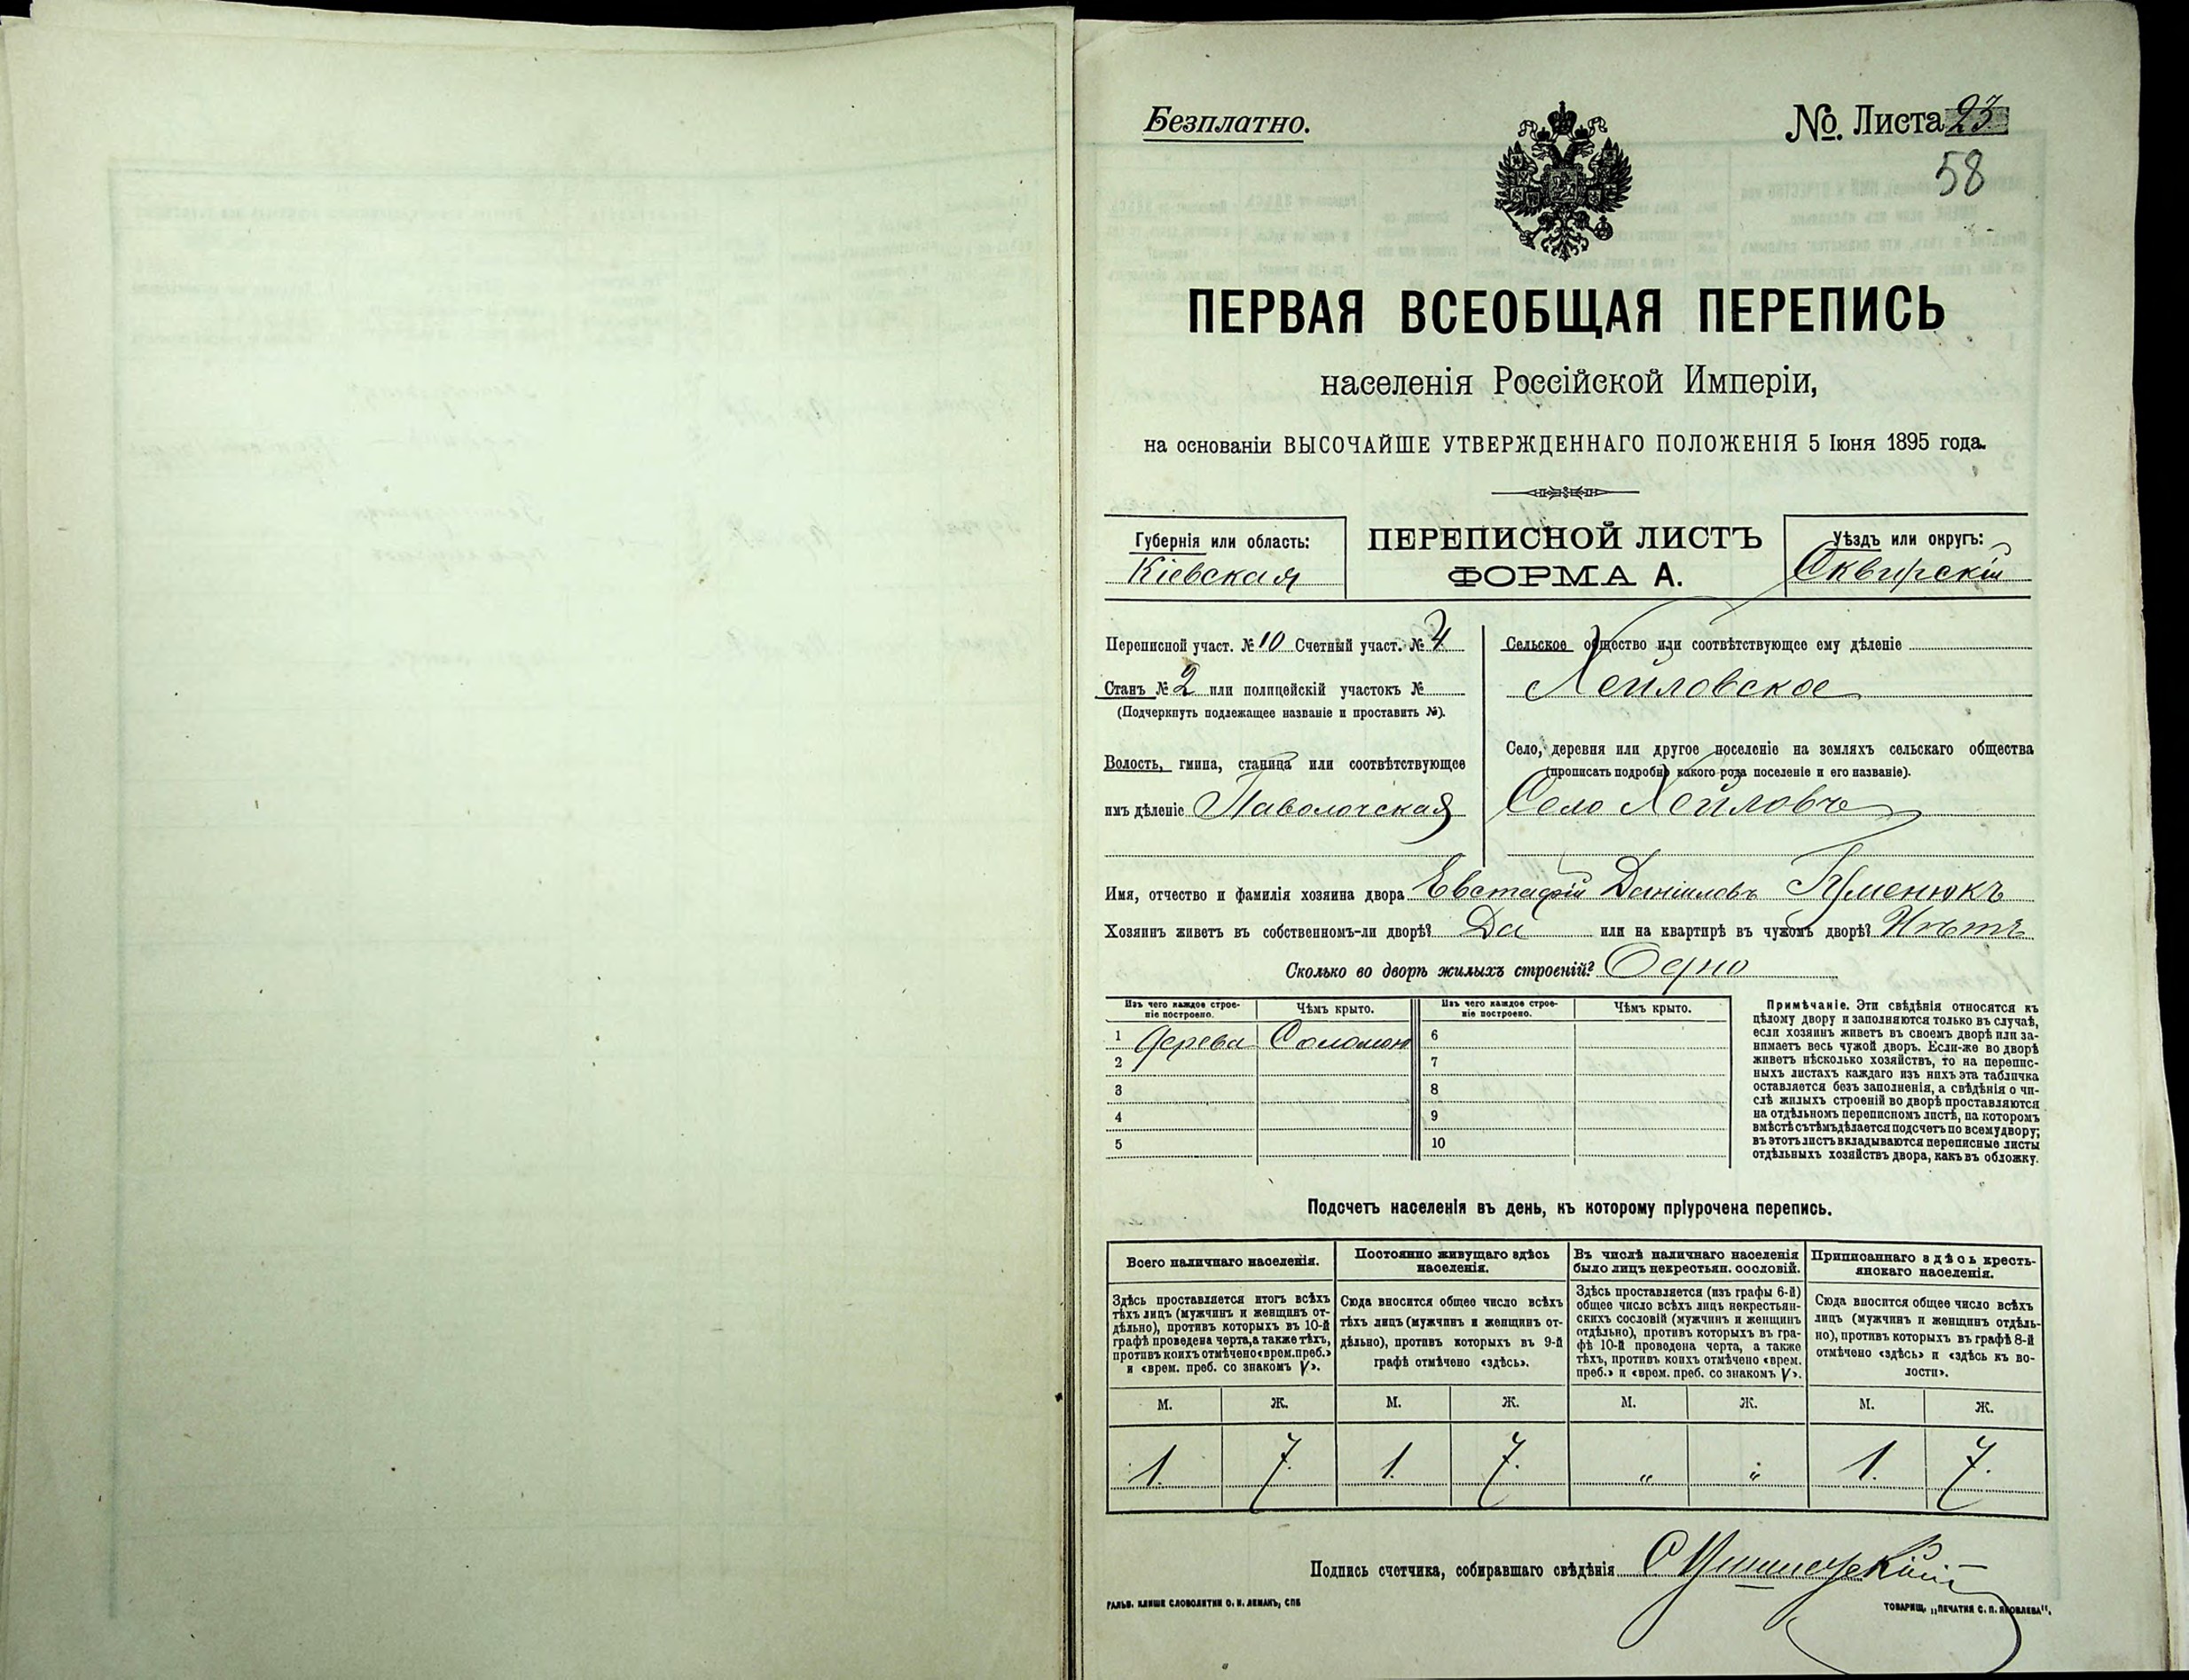 Безплатно.
№. Листа 23
58
ПЕРВАЯ ВСЕОБЩАЯ ПЕРЕПИСЬ
населенія Россійской Имперіи,
на основаніи ВЫСОЧАЙШЕ УТВЕРЖДЕННАГО ПОЛОЖЕНІЯ 5 Іюня 1895 года.
Губернія или область:
Кіевская
ПЕРЕПИСНОЙ ЛИСТЪ
ФОРМА А.
Уѣздъ или округъ:
Сквирскій
Переписной участ. № 10 Счетный участ. № 4
Станъ № 2 или полицейскій участокъ №
(Подчеркнуть подлежащее названіе и проставить №).
Волость, гмина, станица или соотвѣтствующее
имъ дѣленіе Паволочская
Сельское общество или соотвѣтствующее ему дѣленіе
Хейловское
Село, деревня или другое поселеніе на земляхъ сельскаго общества
(прописать подробно какого рода поселеніе и его названіе).
Село Хейловъ
Имя, отчество и фамилія хозяина двора Евстафій Даніиловъ Гуменюкъ
Хозяинъ живетъ въ собственномъ-ли дворѣ? Да или на квартирѣ въ чужомъ дворѣ? Нѣтъ
Сколько во дворѣ жилыхъ строеній? Одно
Изъ чего каждое строе-
ніе построено.
Чѣмъ крыто.
Изъ чего каждое строе-
ніе построено.
Чѣмъ крыто.
1 Дерева Соломою 6
2 7
3 8
4 9
5 10
Примѣчаніе. Эти свѣдѣнія относятся къ
цѣлому двору и заполняются только въ случаѣ,
если хозяинъ живетъ въ своемъ дворѣ или за-
нимаетъ весь чужой дворъ. Если-же во дворѣ
живетъ нѣсколько хозяйствъ, то на перепис-
ныхъ листахъ каждаго изъ нихъ эта табличка
оставляется безъ заполненія, а свѣдѣнія о чи-
слѣ жилыхъ строеній во дворѣ проставляются
на отдѣльномъ переписномъ листѣ, на которомъ
вмѣстѣ съ тѣмъ дѣлается подсчетъ по всему двору;
въ этотъ листъ вкладываются переписные листы
отдѣльныхъ хозяйствъ двора, какъ въ обложку.
Подсчетъ населенія въ день, къ которому пріурочена перепись.
Всего наличнаго населенія.
Здѣсь проставляется итогъ всѣхъ
тѣхъ лицъ (мужчинъ и женщинъ от-
дѣльно), противъ которыхъ въ 10-й
графѣ проведена черта, а также тѣхъ,
противъ коихъ отмѣчено «врем. преб.»
и «врем. преб. со знакомъ V».
Постоянно живущаго здѣсь
населенія.
Сюда вносится общее число всѣхъ
тѣхъ лицъ (мужчинъ и женщинъ от-
дѣльно), противъ которыхъ въ 9-й
графѣ отмѣчено «здѣсь».
Въ числѣ наличнаго населенія
было лицъ некрестьян. сословій.
Здѣсь проставляется (изъ графы 6-й)
общее число всѣхъ лицъ некрестьян-
скихъ сословій (мужчинъ и женщинъ
отдѣльно), противъ которыхъ въ гра-
фѣ 10-й проведена черта, а также
тѣхъ, противъ коихъ отмѣчено «врем.
преб.» и «врем. преб. со знакомъ V».
Приписаннаго здѣсь кресть-
янскаго населенія.
Сюда вносится общее число всѣхъ
лицъ (мужчинъ и женщинъ отдѣль-
но), противъ которыхъ въ графѣ 8-й
отмѣчено «здѣсь» и «здѣсь къ во-
лости».
М. Ж. М. Ж. М. Ж. М. Ж.
1. 7. 1. 7. " " 1. 7.
Подпись счетчика, собиравшаго свѣдѣнія
ГАЛЬВ. КЛИШЕ СЛОВОЛИТНИ О. И. ЛЕМАНЪ, СПБ
ТОВАРИЩ. „ПЕЧАТНЯ С. П. ЯКОВЛЕВА".